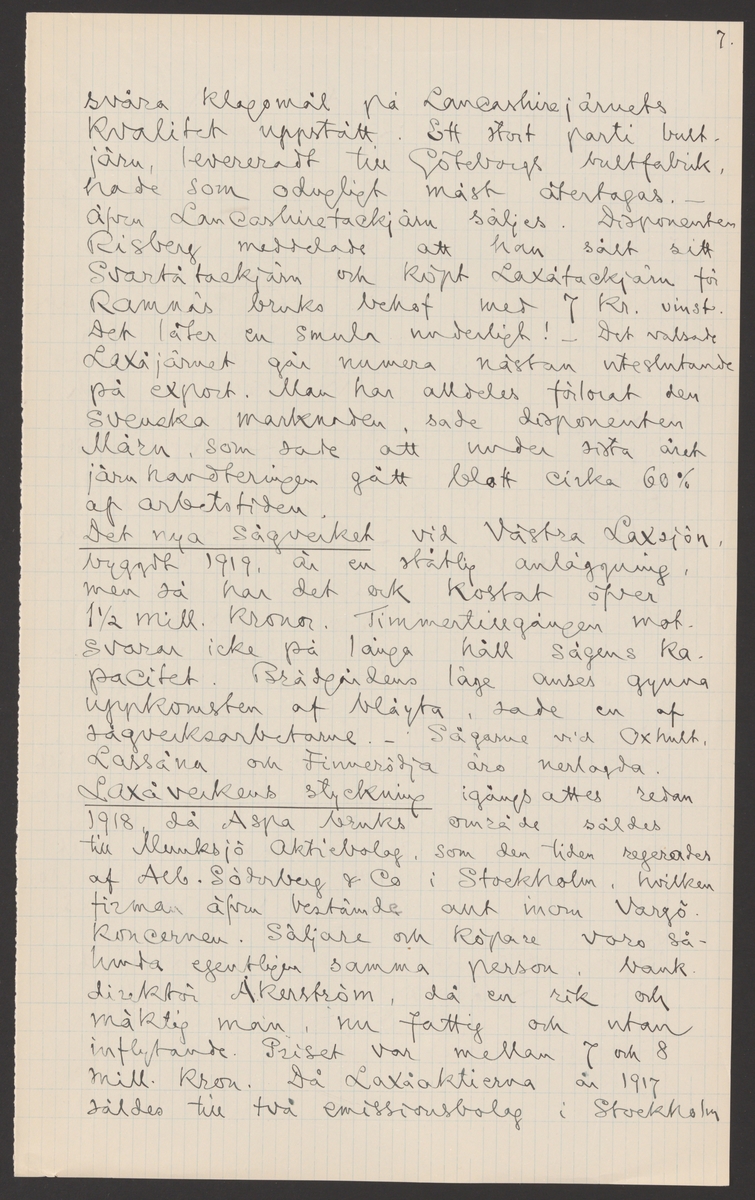 7.
svåra klagomål på Lancashirejärnets
kvalitet uppstått. Ett stort parti bult-
järn, levereradt till Göteborgs bultfabrik,
hade som odugligt måst återtagas. –
äfven Lancashiretackjärn säljes. Disponenten
Risberg meddelade att han sålt sitt
Svartåtackjärn och köpt Laxåtackjärn för
Ramnäs bruks behof med 7 Kr. vinst.
Det låter en smula underligt! – Det valsade
Laxåjärnet går numera nästan uteslutande
på export. Man har alldeles förlorat den
svenska marknaden, sade disponenten
Mårn, som sade att under sista året
järnhandteringen gått blott cirka 60%
af arbetstiden.
Det nya sågverket vid Västra Laxsjön,
byggdt 1919, är en ståtlig anläggning,
men så har det ock kostat öfver
1½ mill. kronor. Timmertillgången mot-
svarar icke på långa håll sågens ka-
pacitet. Brädgårdens läge anses gynna
uppkomsten af blåyta, sade en af
sågverksarbetarne. – Sågarne vid Oxhult,
Lassåna och Finnerödja äro nerlagda.
Laxåverkens styckning igångsattes redan
1918, då Aspa bruks område såldes
till Munksjö Aktiebolag, som den tiden regerades
af Alb. Söderberg & Co i Stockholm, hvilken
firman äfven bestämde allt inom Vargö-
koncernen. Säljare och köpare voro så-
lunda egentligen samma person, bank-
direktör Åkerström, då en rik och
mäktig man, nu fattig och utan
inflytande. Priset var mellan 7 och 8
mill. kron. Då Laxåaktierna år 1917
såldes till två emissionsbolag i Stockholm